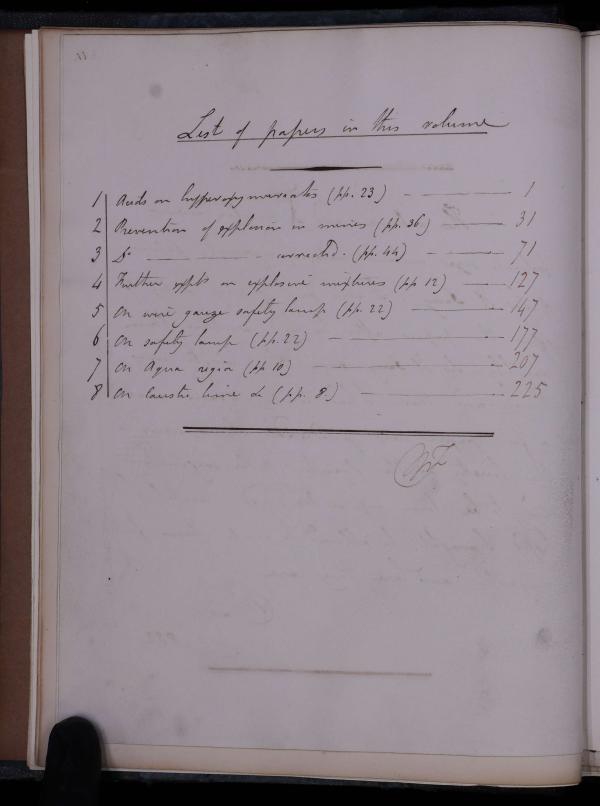 List of papers in this volume
1 Acids on hyperoxymuriates (pp. 23) 1
2 Prevention of explosion in mines (pp. 36.) 31
3 Do corrected. (pp. 44) 71
4 Further expts on explosive mixtures (pp 12) 127
5 On wire gauze safety lamp (pp. 22) 147
6 On safety lamp (pp. 22) 177
7 On Aqua regia (pp 10) 207
8 On caustic lime &c (pp. 8.) 225